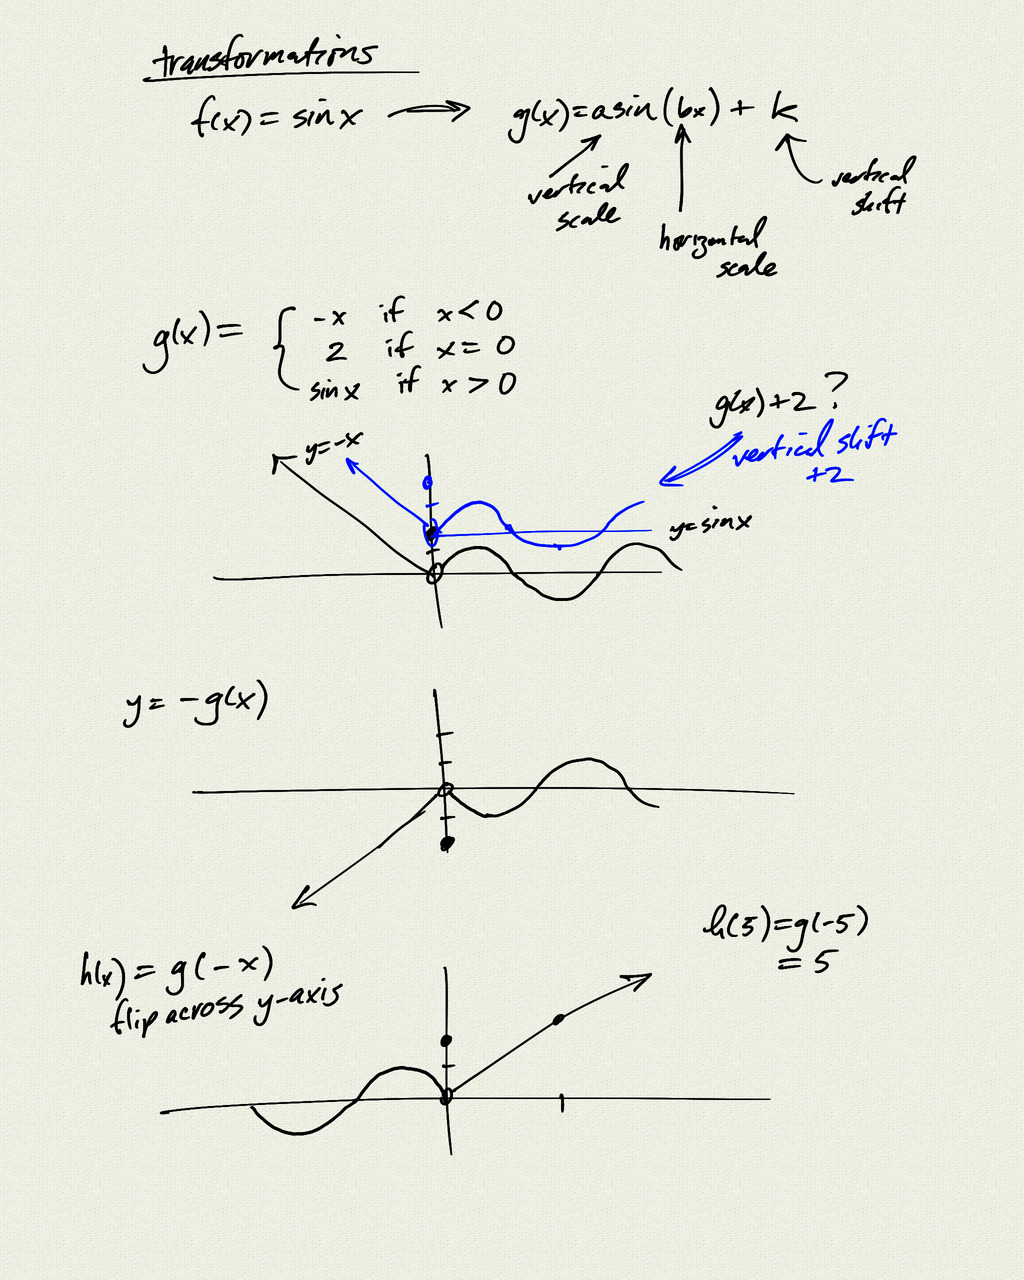 transformations
f(x) = sin x → g(x) = a sin (bx) + k
vertical scale
horizontal scale
vertical shift
g(x) = { -x if x < 0
2 if x = 0
sin x if x > 0
g(x) + 2 ?
vertical shift +2
y = -x
y = sin x
y = -g(x)
h(x) = g(-x)
flip across y-axis
h(5) = g(-5)
= 5